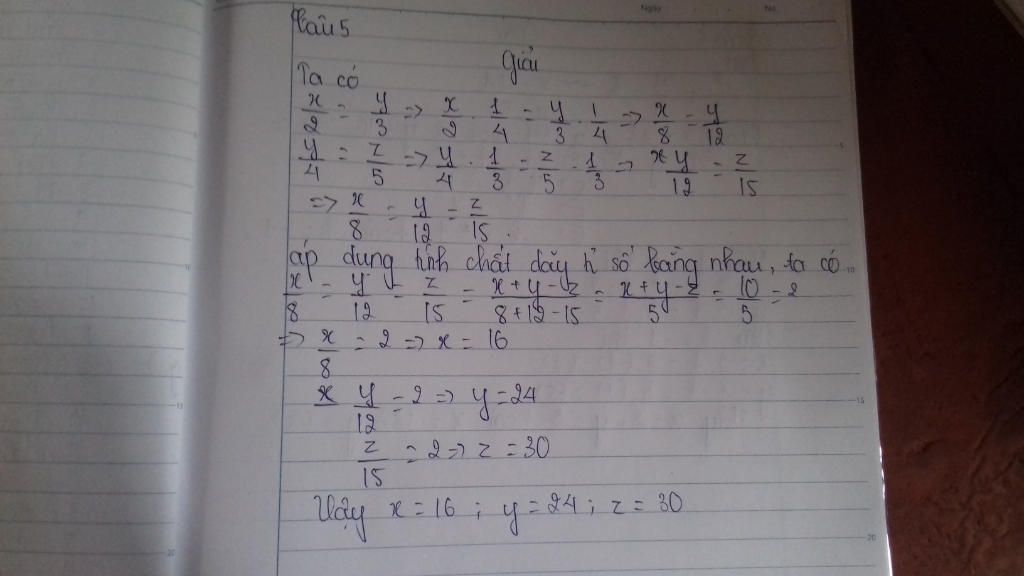 Câu 5
Giải
Ta có
x/2 = y/3 => x/2 . 1/4 = y/3 . 1/4 => x/8 = y/12
y/4 = z/5 => y/4 . 1/3 = z/5 . 1/3 => y/12 = z/15
=> x/8 = y/12 = z/15 .
áp dụng tính chất dãy tỉ số bằng nhau, ta có
x/8 = y/12 = z/15 = x+y-z/8+12-15 = x+y-z/5 = 10/5 = 2
=> x/8 = 2 => x = 16
y/12 = 2 => y = 24
z/15 = 2 => z = 30
Vậy x = 16 ; y = 24 ; z = 30
Ngày No.
5
10
15
20